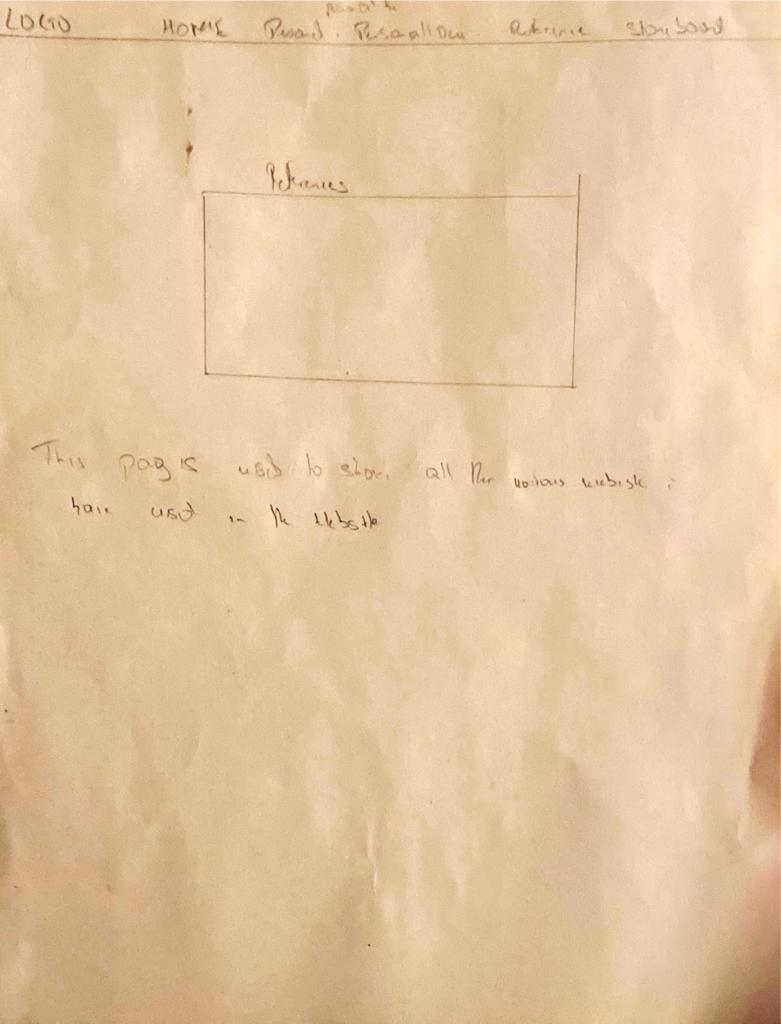 LOGO HOME Reference Storyboard
References
This pag is used to show all the various website i
have used in the website